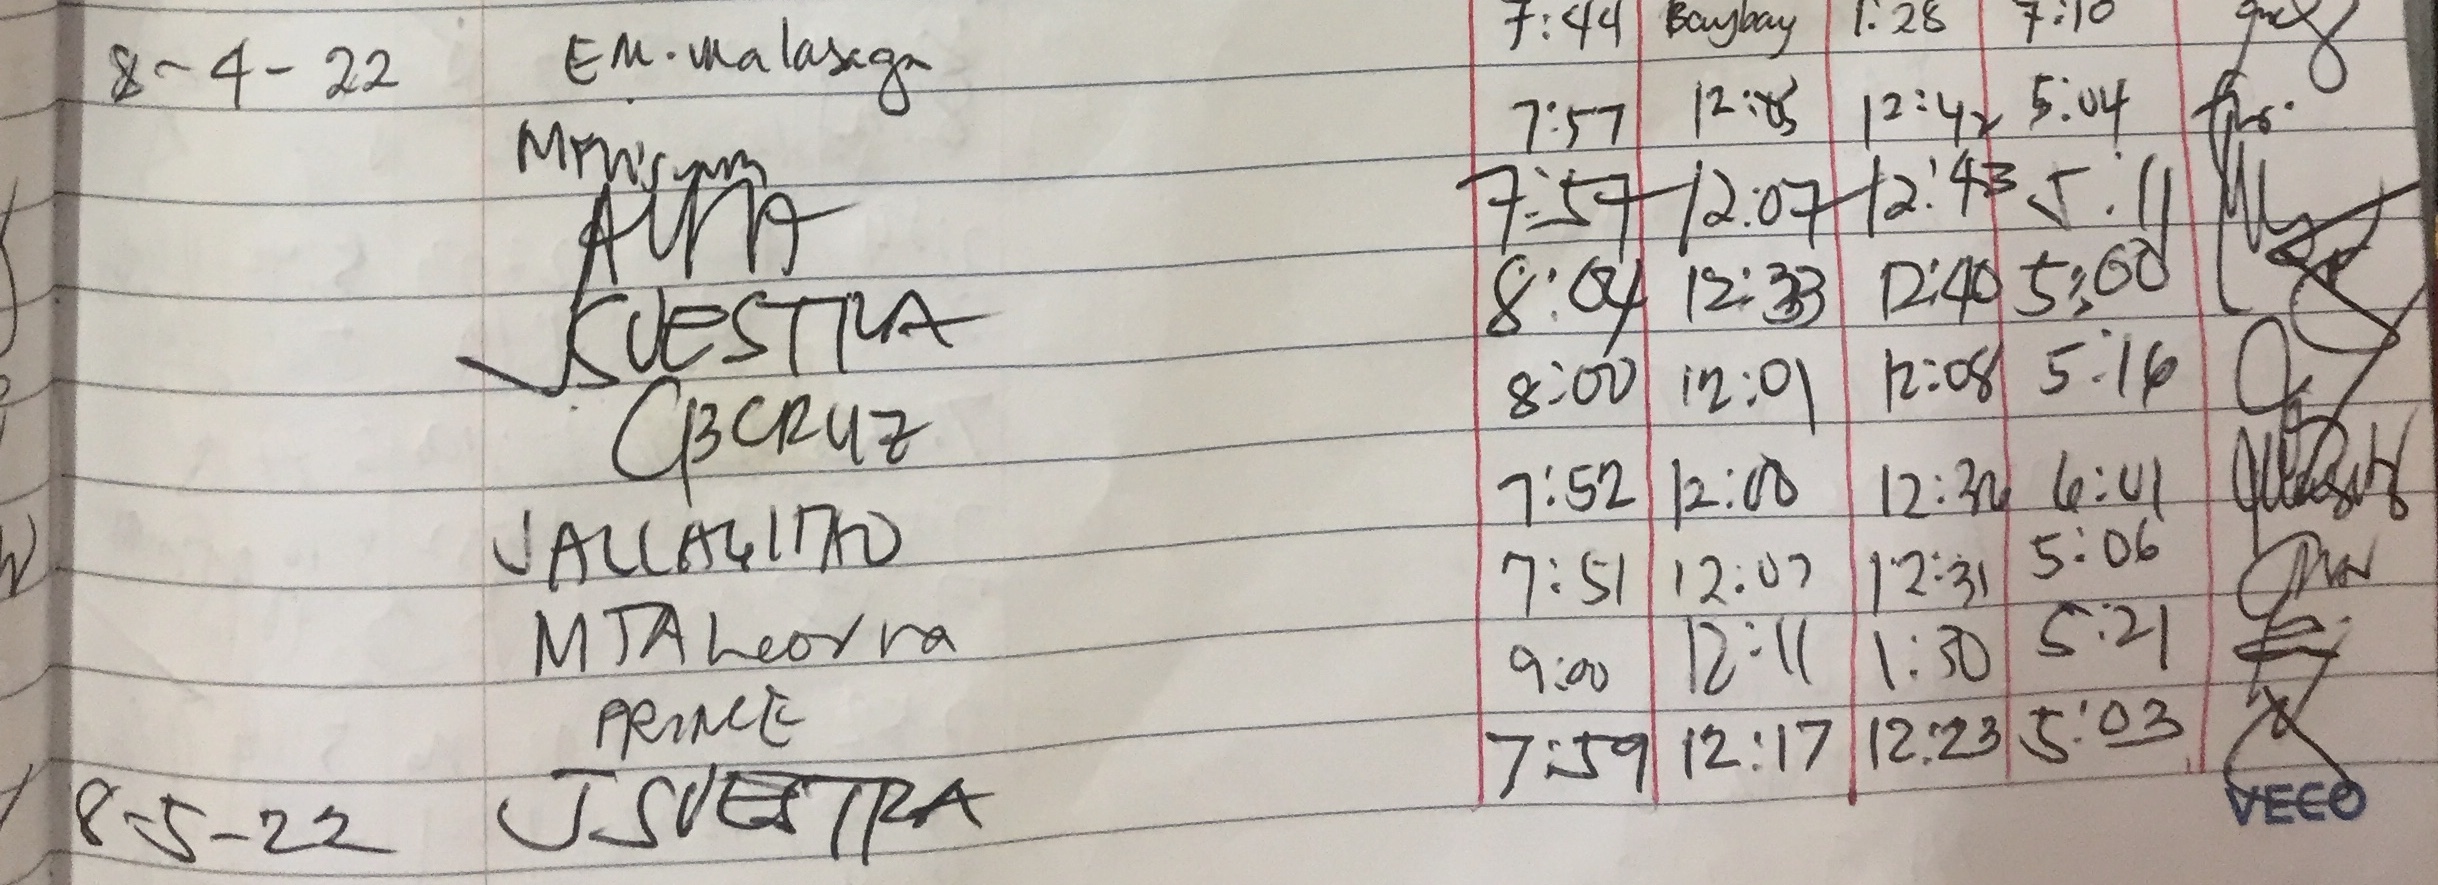 8-4-22 EM. Malasaga 7:44 Baybay 1:28 7:10
7:57 12:05 12:42 5:04
7:57 12:07 12:43 5:11
JSVESTRA 8:04 12:33 12:40 5:00
CBCRUZ 8:00 12:01 12:08 5:16
7:52 12:00 6:01
MTALeorna 7:51 12:07 12:31 5:06
PRINCE 9:00 12:11 1:30 5:21
8-5-22 JSVESTRA 7:59 12:17 12:23 5:03
VECO